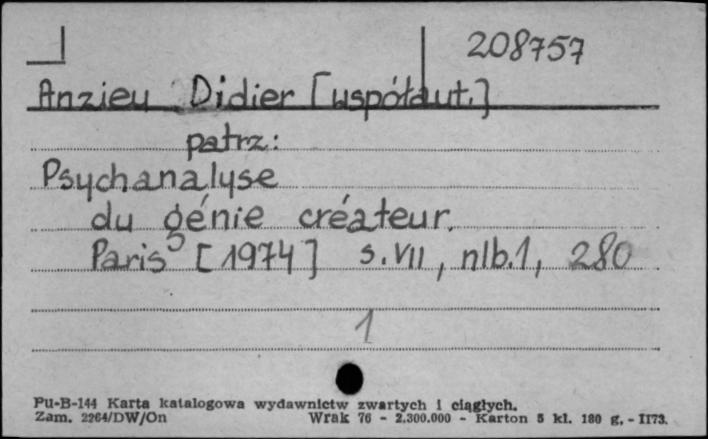 208757
Anzieu Didier [współaut.]
patrz:
Psychanalyse
du génie créateur.
Paris [1974] s. VII, nlb. 1, 280
1
Pu-B-144 Karta katalogowa wydawnictw zwartych i ciągłych.
Zam. 2264/DW/On Wrak 76 - 2.300.000 - Karton 5 kl. 180 g. - II73.